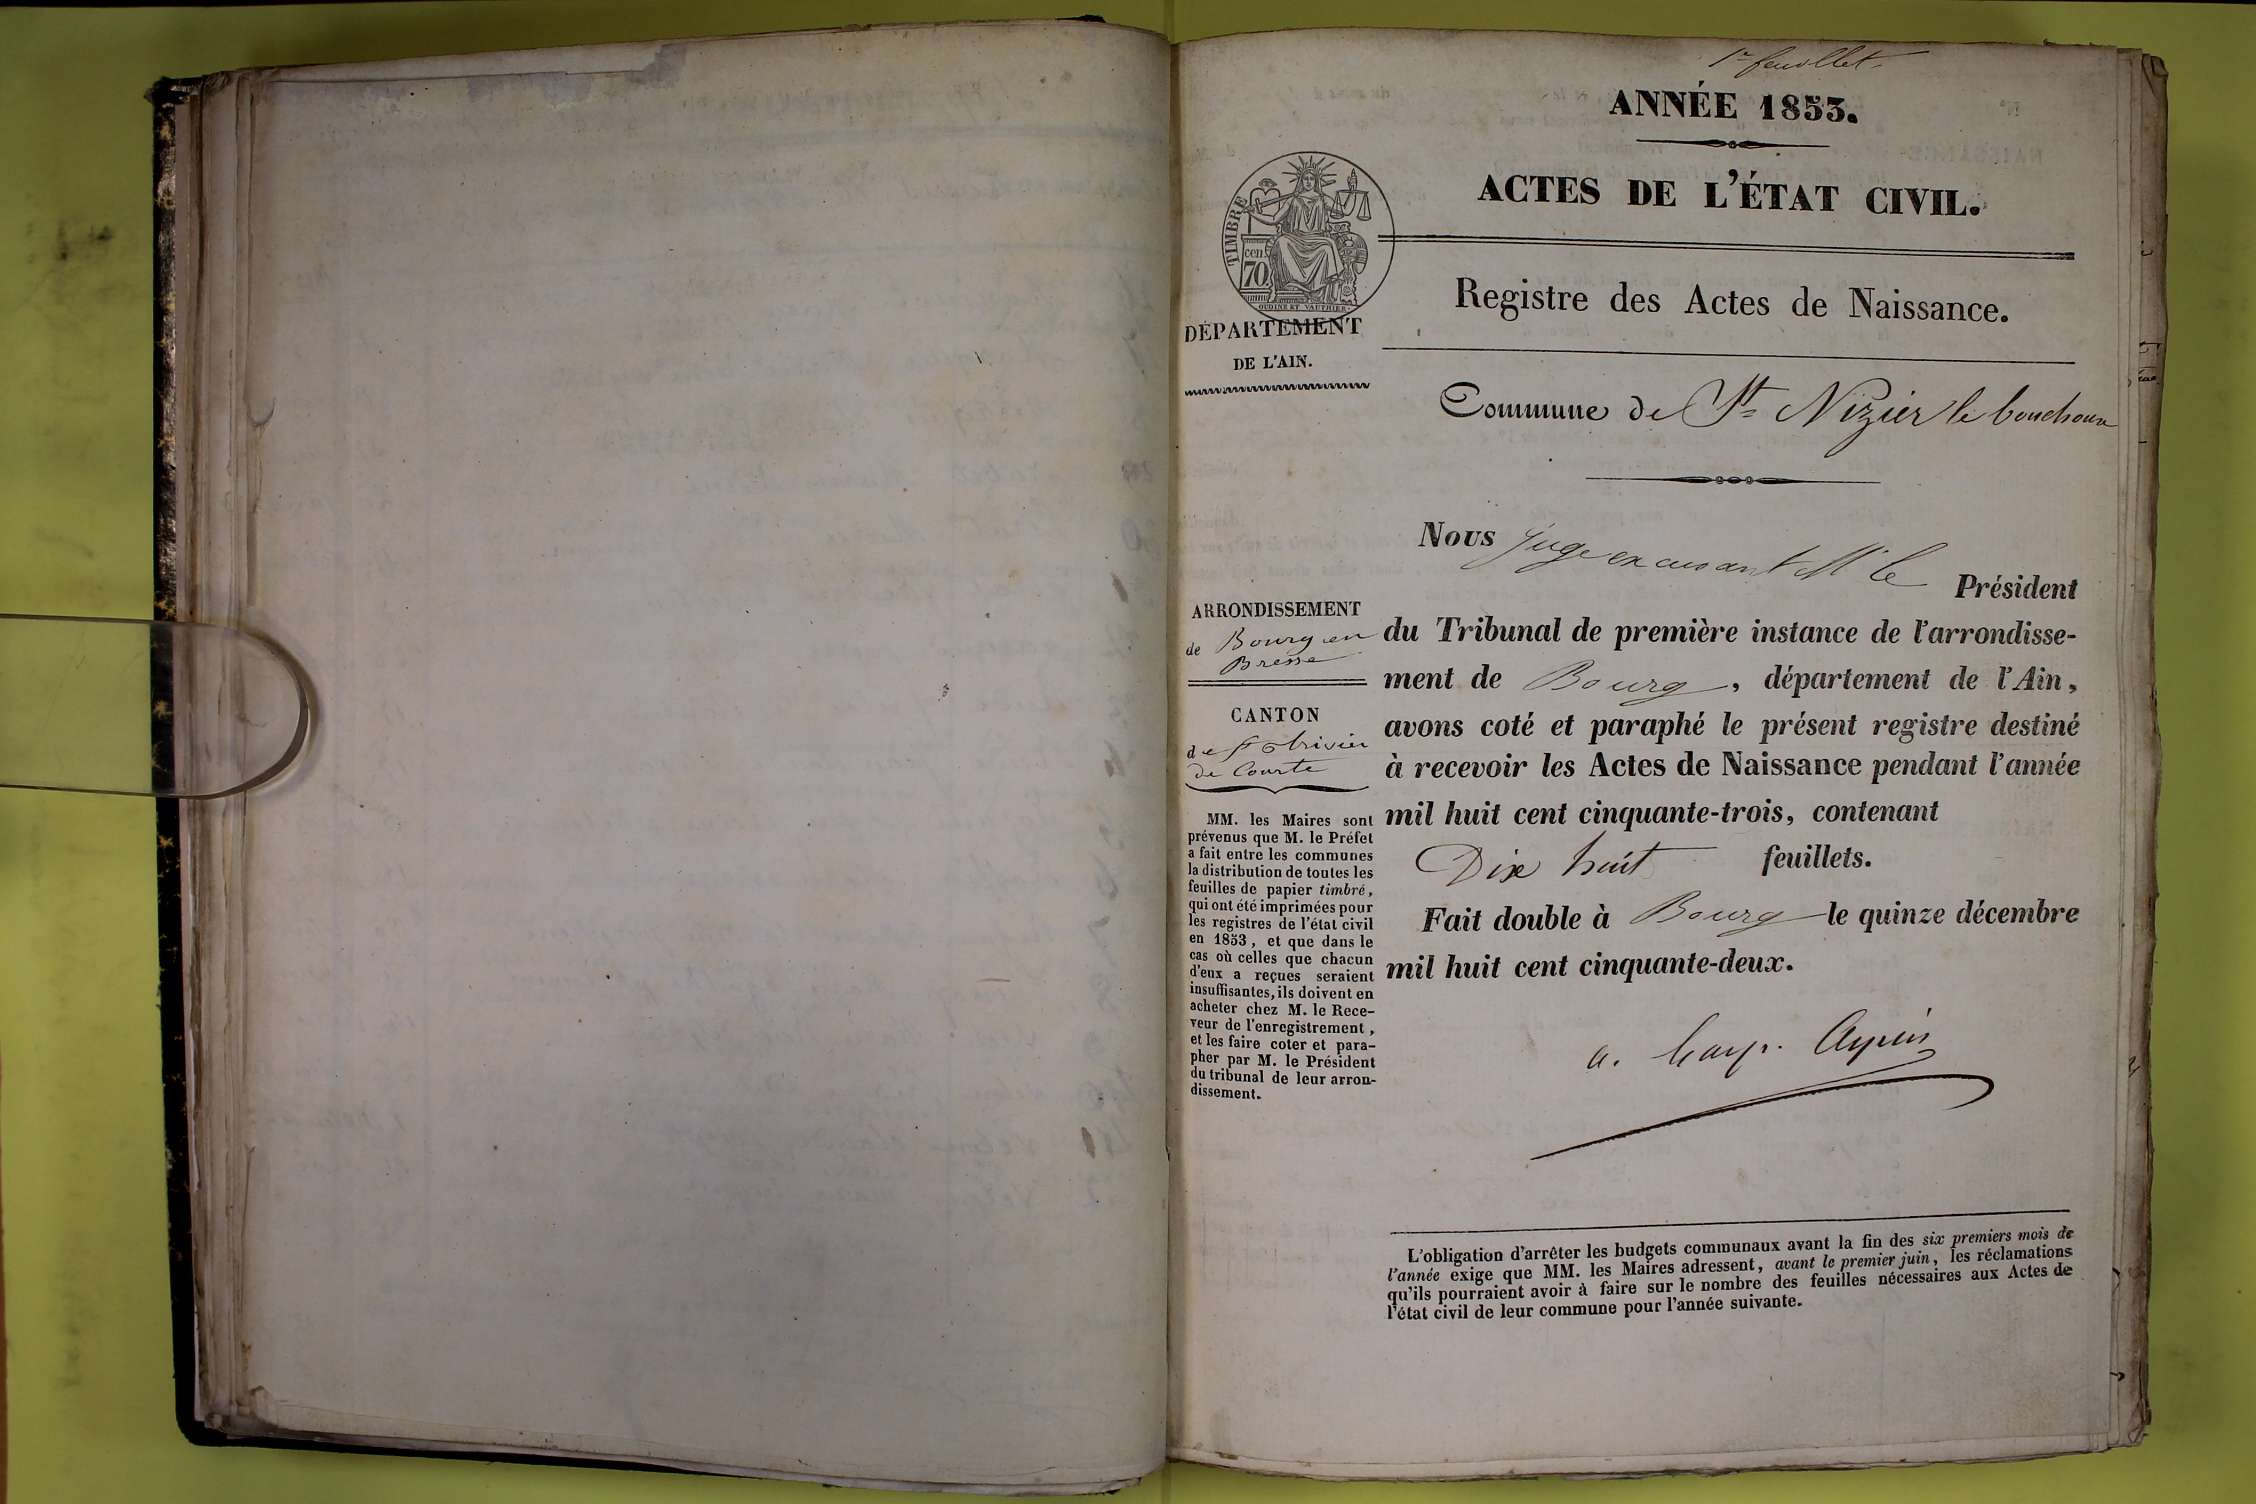 1er feuillet
ANNÉE 1853.
ACTES DE L'ÉTAT CIVIL.
TIMBRE
cen.
70
OUDINÉ ET VAUTHIER
Registre des Actes de Naissance.
DÉPARTEMENT
DE L'AIN.
Commune de St Nizier le bouchoux
Nous Juge excusant Mr le
Président
du Tribunal de première instance de l'arrondisse-
ment de Bourg, département de l'Ain,
avons coté et paraphé le présent registre destiné
à recevoir les Actes de Naissance pendant l'année
mil huit cent cinquante-trois, contenant
Dix huit feuillets.
Fait double à Bourg le quinze décembre
mil huit cent cinquante-deux.
ARRONDISSEMENT
de Bourg en
Bresse
CANTON
de St trivier
de Courte
MM. les Maires sont
prévenus que M. le Préfet
a fait entre les communes
la distribution de toutes les
feuilles de papier timbré,
qui ont été imprimées pour
les registres de l'état civil
en 1853, et que dans le
cas où celles que chacun
d'eux a reçues seraient
insuffisantes, ils doivent en
acheter chez M. le Rece-
veur de l'enregistrement,
et les faire coter et para-
pher par M. le Président
du tribunal de leur arron-
dissement.
L'obligation d'arrêter les budgets communaux avant la fin des six premiers mois de
l'année exige que MM. les Maires adressent, avant le premier juin, les réclamations
qu'ils pourraient avoir à faire sur le nombre des feuilles nécessaires aux Actes de
l'état civil de leur commune pour l'année suivante.